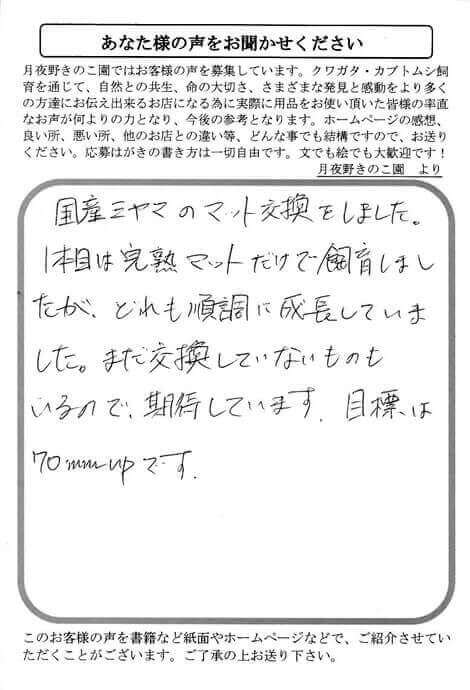 あなた様の声をお聞かせください
月夜野きのこ園ではお客様の声を募集しています。クワガタ・カブトムシ飼
育を通じて、自然との共生、命の大切さ、さまざまな発見と感動をより多く
の方達にお伝え出来るお店になる為に実際に用品をお使い頂いた皆様の率直
なお声が何よりの力となり、今後の参考となります。ホームページの感想、
良い所、悪い所、他のお店との違い等、どんな事でも結構ですので、お送り
ください。応募はがきの書き方は一切自由です。文でも絵でも大歓迎です！
月夜野きのこ園　より
国産ミヤマのマット交換をしました。
1本目は完熟マットだけで飼育しまし
たが、どれも順調に成長していま
した。まだ交換していないものも
いるので、期待しています。目標は
70mmupです。
このお客様の声を書籍など紙面やホームページなどで、ご紹介させてい
ただくことがございます。ご了承の上お送り下さい。